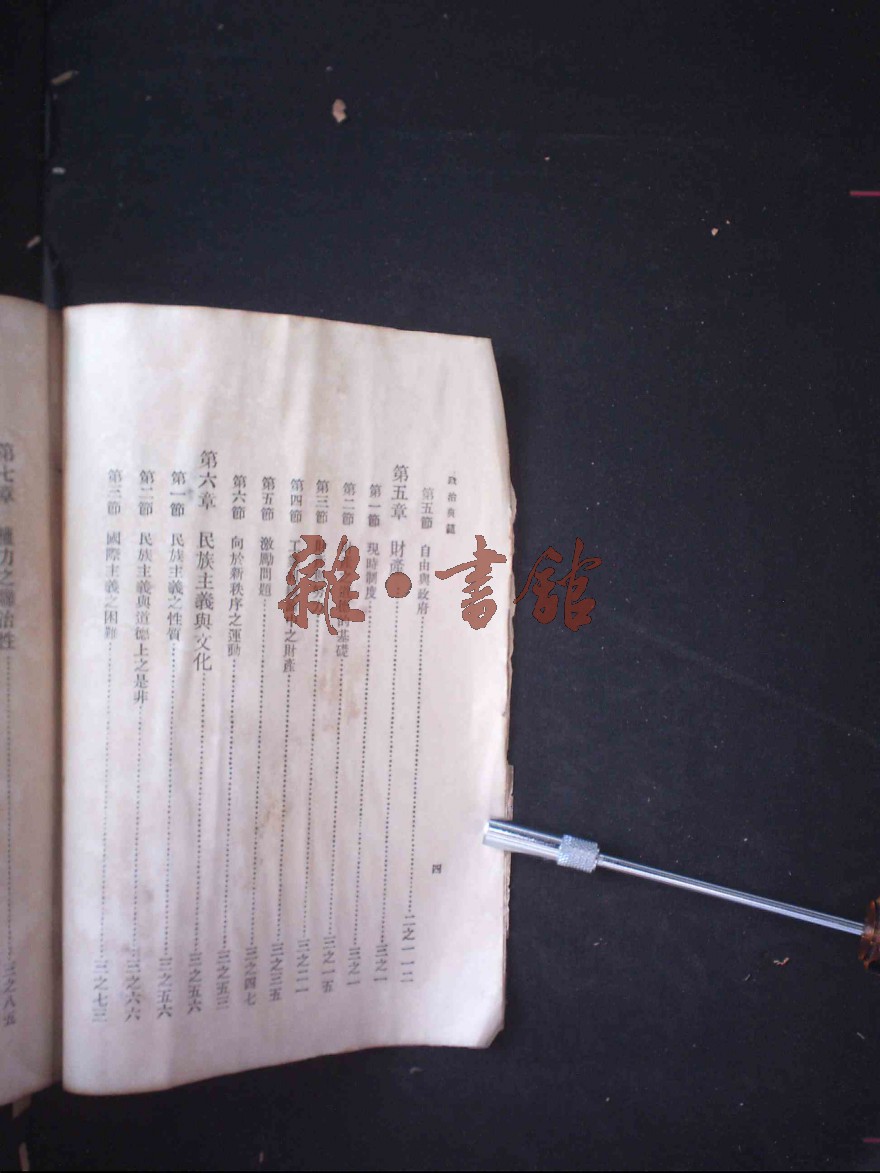 政治典範
第五節 自由與政府 二之一一二
第五章 財產 三之一
第一節 現時制度 三之一
第二節 的基礎 三之一
第三節 三之一五
第四節 之財產 三之二一
第五節 激勵問題 三之三五
第六節 向於新秩序之運動 三之四七
第六章 民族主義與文化 三之五三
第一節 民族主義之性質 三之五六
第二節 民族主義與道德上之是非 三之六六
第三節 國際主義之困難 三之七三
四
第七章 權力之聯治性 三之八五
雜·書館